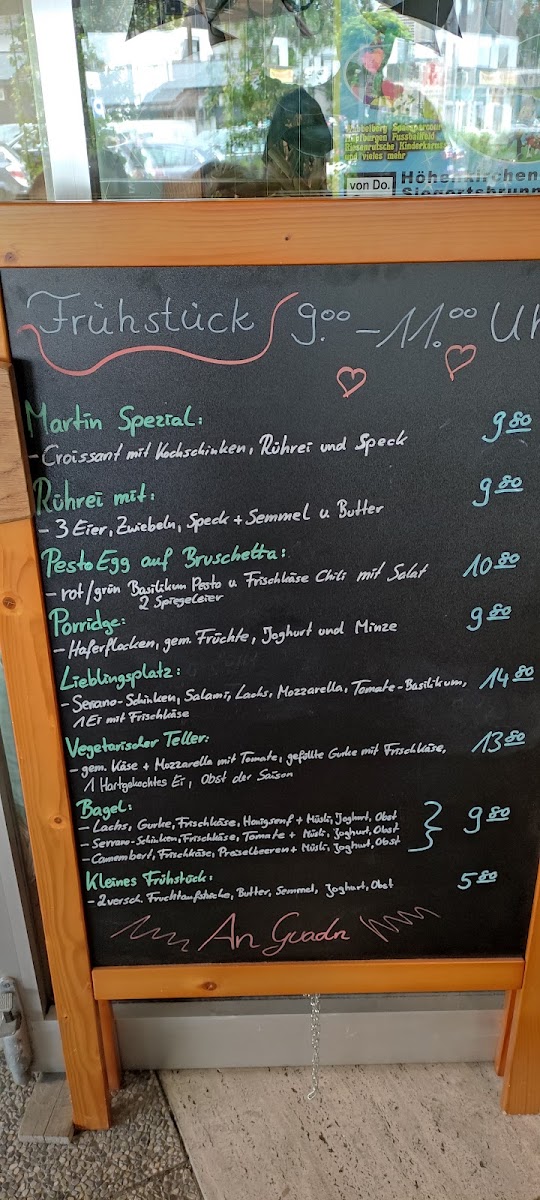 Kubbelberg | Spassparcour
Hüpfburgen | Fussballfeld
Riesenrutsche | Kinderkarussell
und vieles mehr
von Do.
Höhenkirchen
Siegertsbrunn
Frühstück 9.00 – 11.00 Uh
Martin Spezial: 9 80
- Croissant mit Kochschinken, Rührei und Speck
Rührei mit: 9 80
- 3 Eier, Zwiebeln, Speck + Semmel u Butter
Pesto Egg auf Bruschetta: 10 80
- rot/grün Basilikum Pesto u Frischkäse Chili mit Salat
2 Spiegeleier
Porridge: 9 80
- Haferflocken, gem. Früchte, Joghurt und Minze
Lieblingsplatz: 14 80
- Serrano-Schinken, Salami, Lachs, Mozzarella, Tomate-Basilikum,
1 Ei mit Frischkäse
Vegetarischer Teller: 13 80
- gem. Käse + Mozzarella mit Tomate, gefüllte Gurke mit Frischkäse,
1 Hartgekochtes Ei, Obst der Saison
Bagel: 9 80
- Lachs, Gurke, Frischkäse, Honigsenf + Müsli, Joghurt, Obst
- Serrano-Schinken, Frischkäse, Tomate + Müsli, Joghurt, Obst
- Camembert, Frischkäse, Preiselbeeren + Müsli, Joghurt, Obst
Kleines Frühstück: 5 80
- 2 versch. Fruchtaufstriche, Butter, Semmel, Joghurt, Obst
An Guadn